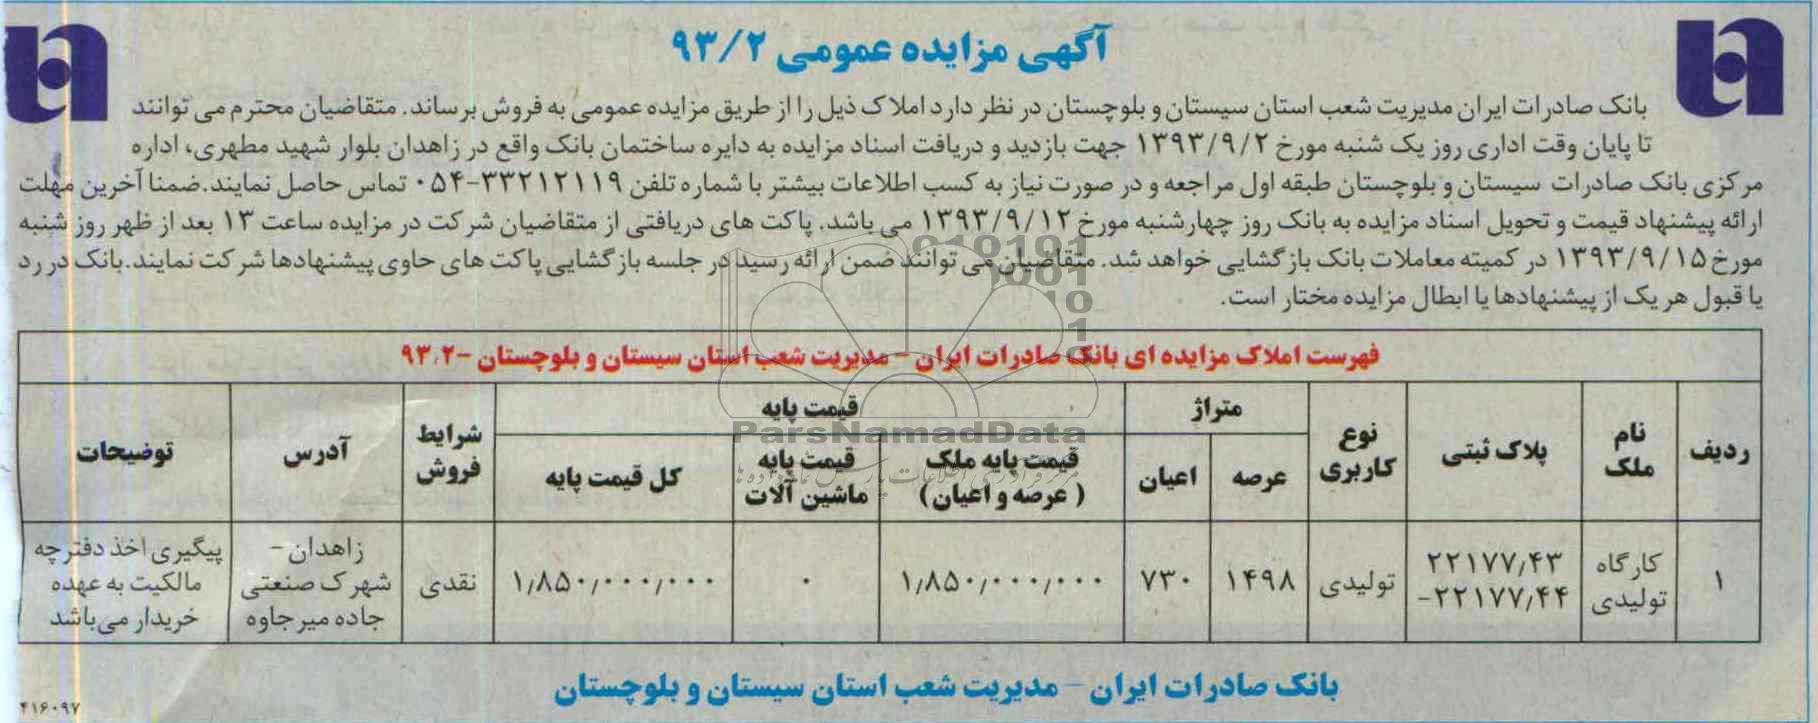 آگهی مزایده عمومی ۹۳/۲
بانک صادرات ایران مدیریت شعب استان سیستان و بلوچستان در نظر دارد املاک ذیل را از طریق مزایده عمومی به فروش برساند. متقاضیان محترم می توانند
تا پایان وقت اداری روز یک شنبه مورخ ۱۳۹۳/۹/۲ جهت بازدید و دریافت اسناد مزایده به دایره ساختمان بانک واقع در زاهدان بلوار شهید مطهری، اداره
مرکزی بانک صادرات سیستان و بلوچستان طبقه اول مراجعه و در صورت نیاز به کسب اطلاعات بیشتر با شماره تلفن ۳۳۲۱۲۱۱۹-۰۵۴ تماس حاصل نمایند.ضمنا آخرین مهلت
ارائه پیشنهاد قیمت و تحویل اسناد مزایده به بانک روز چهارشنبه مورخ ۱۳۹۳/۹/۱۲ می باشد. پاکت های دریافتی از متقاضیان شرکت در مزایده ساعت ۱۳ بعد از ظهر روز شنبه
مورخ ۱۳۹۳/۹/۱۵ در کمیته معاملات بانک بازگشایی خواهد شد. متقاضیان می توانند ضمن ارائه رسید در جلسه بازگشایی پاکت های حاوی پیشنهادها شرکت نمایند.بانک در رد
یا قبول هر یک از پیشنهادها یا ابطال مزایده مختار است.
فهرست املاک مزایده ای بانک صادرات ایران – مدیریت شعب استان سیستان و بلوچستان –۹۳,۲
ردیف
نام ملک
پلاک ثبتی
نوع کاربری
متراژ
عرصه
اعیان
قیمت پایه
قیمت پایه ملک
( عرصه و اعیان)
قیمت پایه
ماشین آلات
کل قیمت پایه
شرایط فروش
آدرس
توضیحات
۱
کارگاه
تولیدی
۲۲۱۷۷,۴۳
۲۲۱۷۷,۴۴–
تولیدی
۱۴۹۸
۷۳۰
۱,۸۵۰,۰۰۰,۰۰۰
۰
۱,۸۵۰,۰۰۰,۰۰۰
نقدی
زاهدان –
شهرک صنعتی
جاده میرجاوه
پیگیری اخذ دفترچه
مالکیت به عهده
خریدار می‌باشد
بانک صادرات ایران – مدیریت شعب استان سیستان و بلوچستان
۴۱۶۰۹۷
ParsNamadData